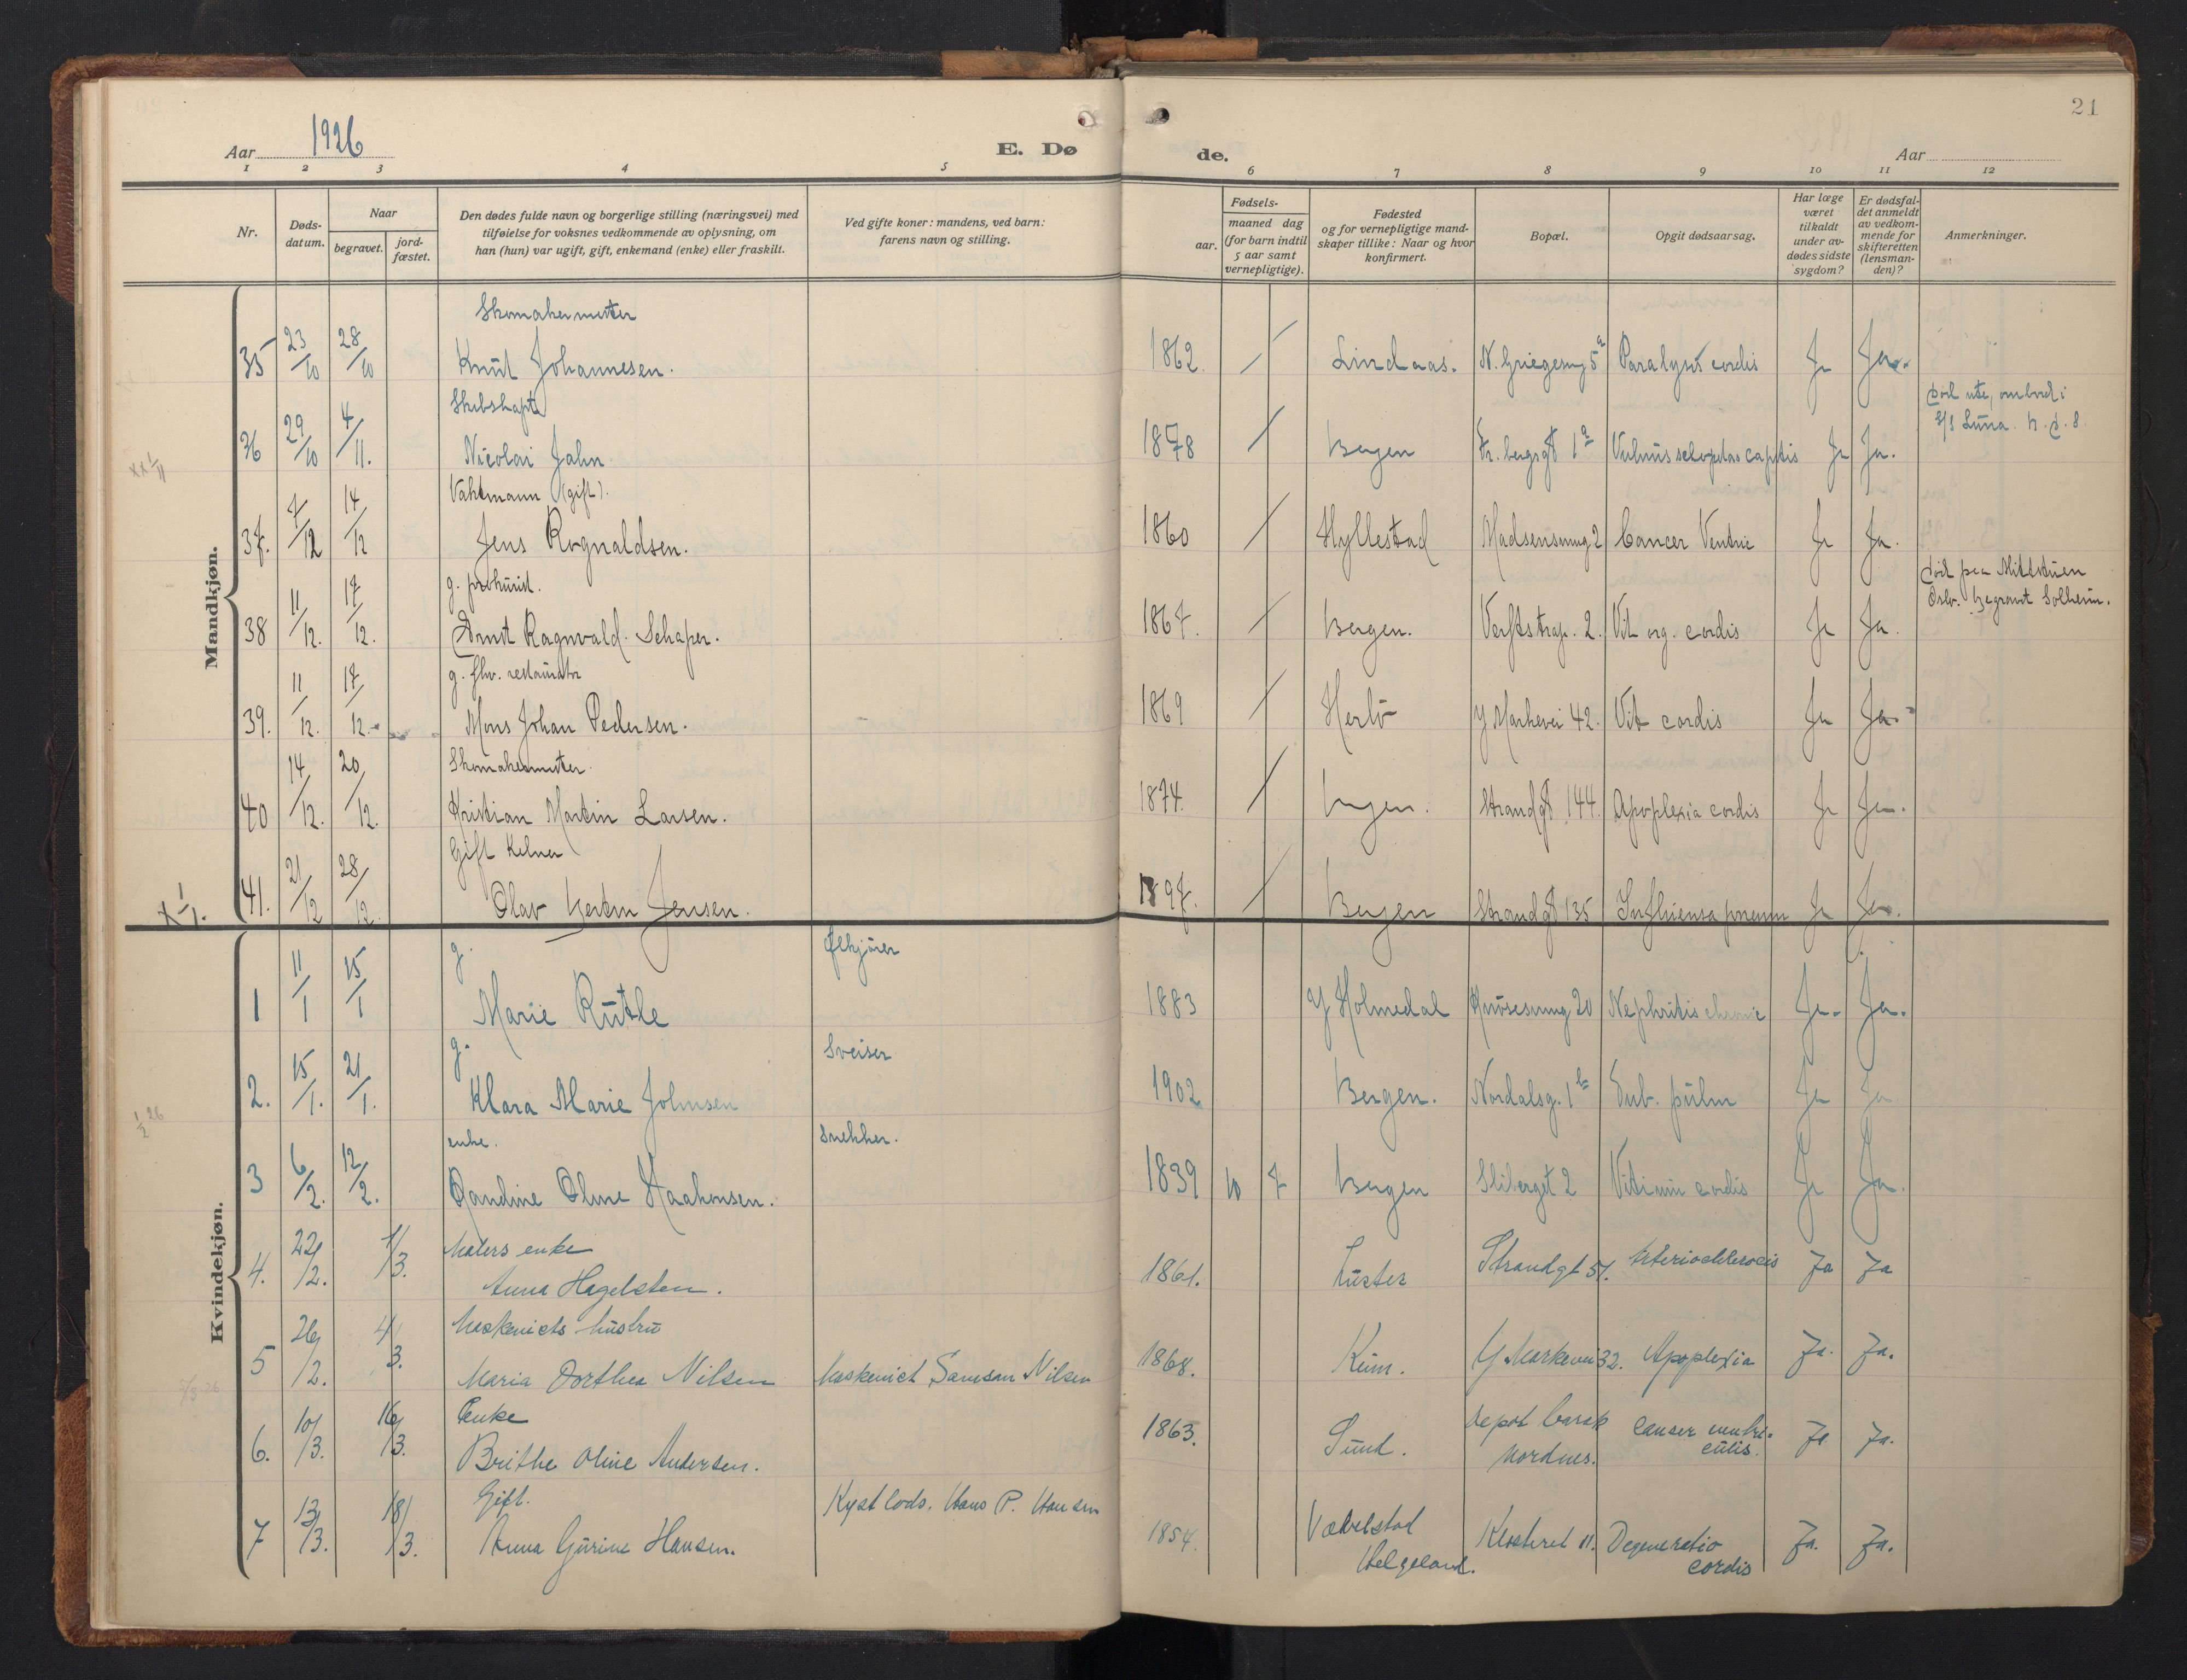 21
Aar 1926
E. Dø
de.
Aar
1 2 3 4 5 6 7 8 9 10 11 12
Nr.
Døds-
datum.
Naar
begravet.
jord-
fæstet.
Den dødes fulde navn og borgerlige stilling (næringsvei) med
tilføielse for voksnes vedkommende av oplysning, om
han (hun) var ugift, gift, enkemand (enke) eller fraskilt.
Ved gifte koner: mandens, ved barn:
farens navn og stilling.
Fødsels-
aar.
maaned dag
(for barn indtil
5 aar samt
vernepligtige).
Fødested
og for vernepligtige mand-
skaper tillike: Naar og hvor
konfirmert.
Bopæl.
Opgit dødsaarsag.
Har læge
været
tilkaldt
under av-
dødes sidste
sygdom?
Er dødsfal-
det anmeldt
av vedkom-
mende for
skifteretten
(lensman-
den)?
Anmerkninger.
Mandkjøn.
Skomakermester
35 23/10 28/10 Knut Johannesen. 1862. Lindaas. N. Griegsmug 5a Paralysis cordis Ja Ja.
Skibskapt
36 29/10 4/11. Nicolai Jahn 1878 Bergen 1a Ja Ja.
død ute, ombord i
S/S Luna. n. d. s.
Vaktmann (gift).
37. 7/12 14/12 Jens Rognaldsen. 1860 Hyllestad Madsensmug 2 Cancer Ventric Ja Ja.
g. prokurist.
38 11/12. 17/12. Arnt Ragnvald Schaper. 1867. Bergen. Verftstræ. 2. Vit org. cordis Ja Ja.
død paa
Oslo. begravet Solheim.
g. fhv. restauratør
39. 11/12. 17/12. Mons Johan Pedersen. 1869 Herlø Y Markevei 42. Vit cordis Ja Ja.
Skomakermester
40 14/12. 20/12. Kristian Martin Larsen. 1874. Bergen. Strandgt 144 Apoplexia cordis Ja Ja.
Gift Kelner
41. 21/12 28/12 Olav Jensen. 1897. Bergen Strandgt 135 Influensa pneum Ja Ja.
Kvindekjøn.
g. Ølkjører
1 11/1 15/1 Marie Rutle 1883 Y Holmedal Knøsesmug 20 Nephritis chronic Ja. Ja.
g. Sveiser
2. 15/1. 21/1. Klara Marie Johnsen 1902 Bergen. Nordalsg. 1b Tub. pulm Ja Ja
enke. Snekker.
3 6/2. 12/2. Randine Oline Haakonsen. 1839 10 7 Bergen Sliberget 2 Vitium cordis Ja Ja.
Malers enke
4. 22/2. 1/3. Anna Hagelsten. 1861. Luster Strandgt 51. Arteriosklerosis Ja Ja
Maskenists hustru
5 26/2. 4/3. Maria Dorthea Nilsen Maskenist Samson Nilsen 1868. Kinn. Y. Markevei 32. Apoplexia Ja. Ja.
Enke
6. 10/3. 16/3. Brithe Oline Andersen. 1863. Sund. Depot barak
Nordnes. Canser ventri-
culis. Ja Ja.
Gift. Kystlods. Hans P. Hansen
7 13/3. 18/3. Anna Gurine Hansen. 1854. Vevelstad
Helgeland. Klosteret 11. Degeneratio
cordis Ja. Ja.